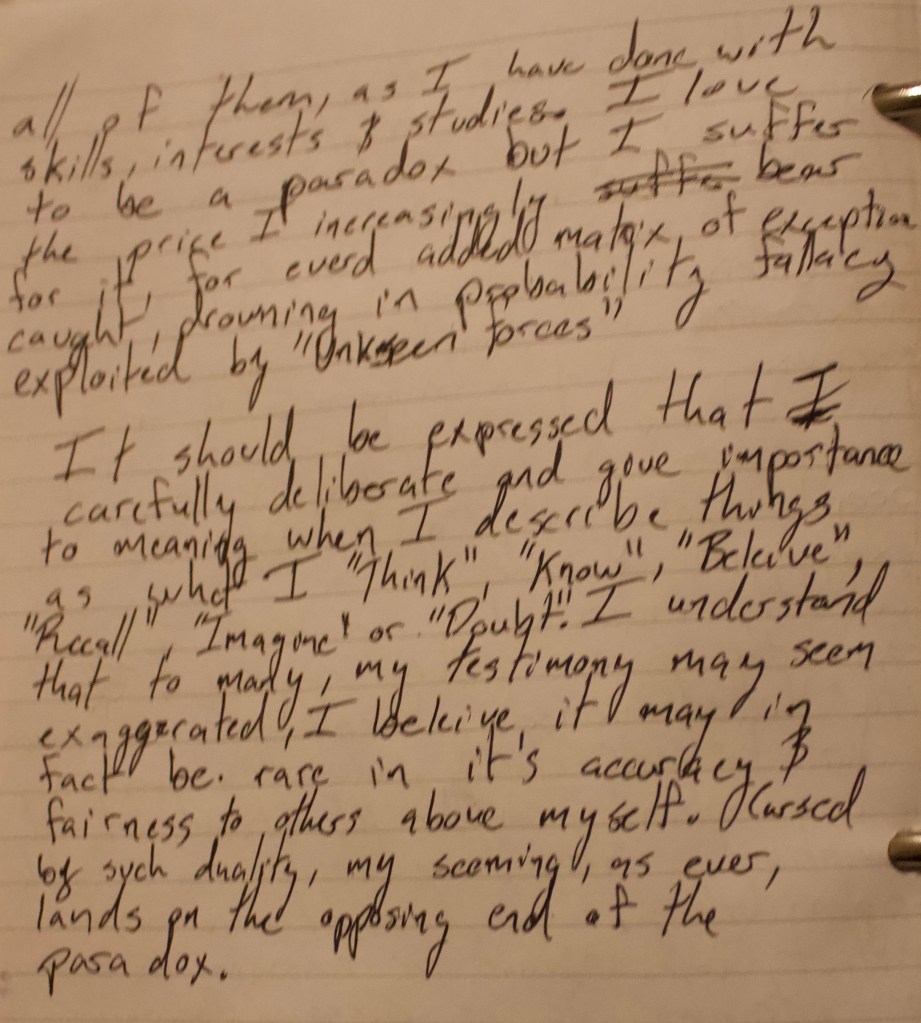 all of them, as I have done with
skills, interests & studies. I love
to be a paradox but I suffer
the price I increasingly suffer bear
for it, for everd added matrix of exception
caught, drowning in probability fallacy
exploited by "Unkseen forces"
It should be expressed that I
carefully deliberate and give importance
to meaning when I describe things
as what I "Think", "Know", "Beleive",
"Recall", "Imagine" or "Doubt". I understand
that to many, my testimony may seem
exaggerated, I beleive it may in
fact be rare in it's accuracy &
fairness to others above myself. Cursed
by such duality, my seeming, as ever,
lands on the opposing end of the
paradox.